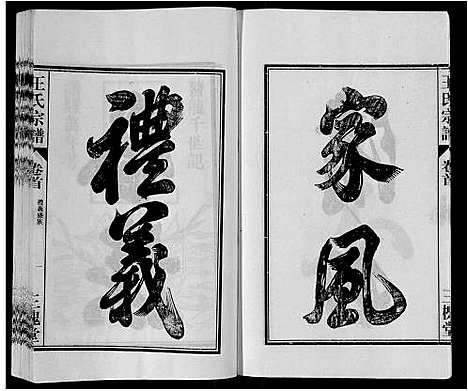 家風
禮義
王氏宗譜
卷首
三槐堂
王氏宗譜
卷首
三槐堂